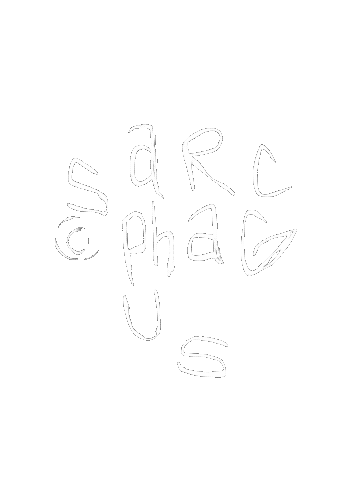 saRc
©phaG
us